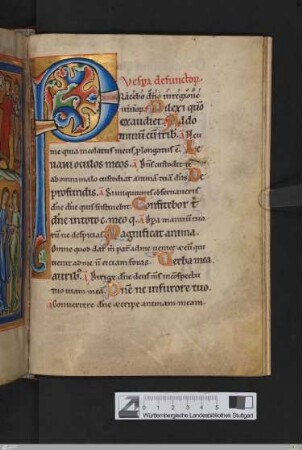 Vesp̄a defunctoꝝ.
Placebo dn̄o in regione
uiuoꝝ. Dilexi quō
exaudiet. Ad do
minum cū trib. a Heu
me quia incolatus meus ꝓlongatus ē. Le
uaui oculos meos. a Dn̄s custodit te
ab omni malo custodiat animā tuā dn̄s. De
profundis. a Si iniquitates obseruaueris
dn̄e dn̄e quis sustinebit. Confitebor t̄
dn̄e in toto c. meo q. a Opa manuum tua
rū ne despicias. Magnificat anima.
Omne quod dat m̄ pat̄ ad me ueniet & eū qui
uenit ad me n̄ eiciam foras. Verba mea
auribꝫ. a Dirige dn̄e ds̄ ms̄ in conspectu
tuo uiam meā. Dn̄e ne in furore tuo.
a Conuertere dn̄e & eripe animam meam.
0 1 2 3 4 5
Württembergische Landesbibliothek Stuttgart